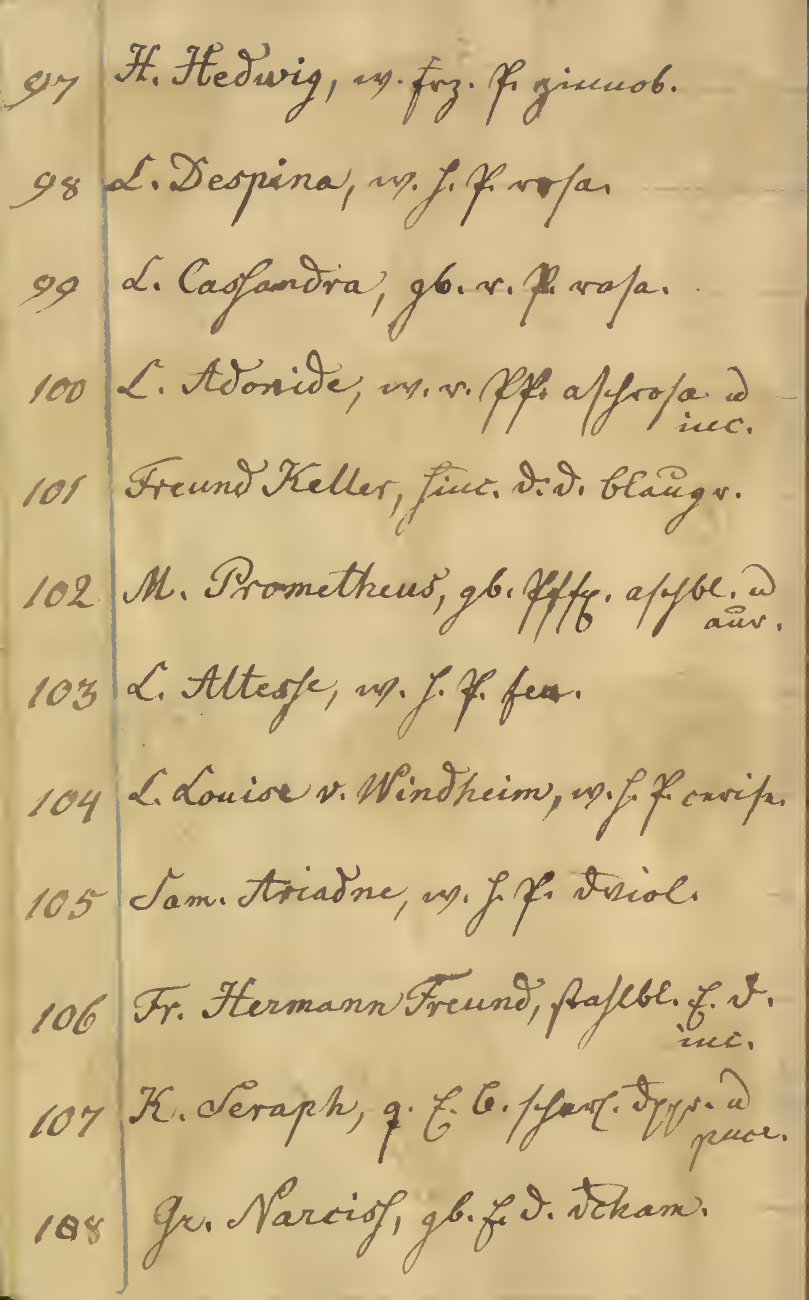 97 H. Hedwig, w. frz. P. zinnob.
98 L. Despina, w. h. P. rosa.
99 L. Cassandra, gb. r. P. rosa.
100 L. Adonide, w. r. Pf. aschrosa u
inc.
101 Freund Keller, d. d. blaugr.
102 M. Prometheus, gb. aschbl. u
aur.
103 L. Altesse, w. h. P. feu.
104 L. Louise v. Windheim, w. h. P. cerise.
105 Sam. Ariadne, w. h. P. dviol.
106 Fr. Hermann Freund, stahlbl. f. d.
inc.
107 K. Seraph, g. f. b. scharl. u
puce.
108 Gr. Narciss, gb. f. d. dcham.